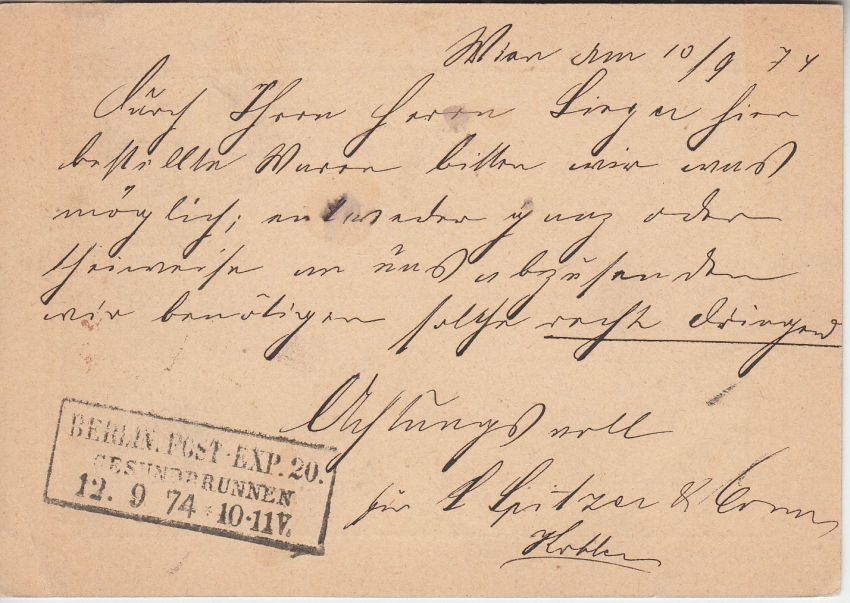 Wien am 10/9 74
Durch Ihren Herrn Sieger hier
bestellte Waren bitten wir was
möglich; entweder ganz oder
theilweise an uns abzusenden
wir benötigen solche recht dringend
Achtungsvoll
für L Spitzer & Comp
BERLIN, POST-EXP. 20.
GESUNDBRUNNEN
12. 9 74 10-11V.